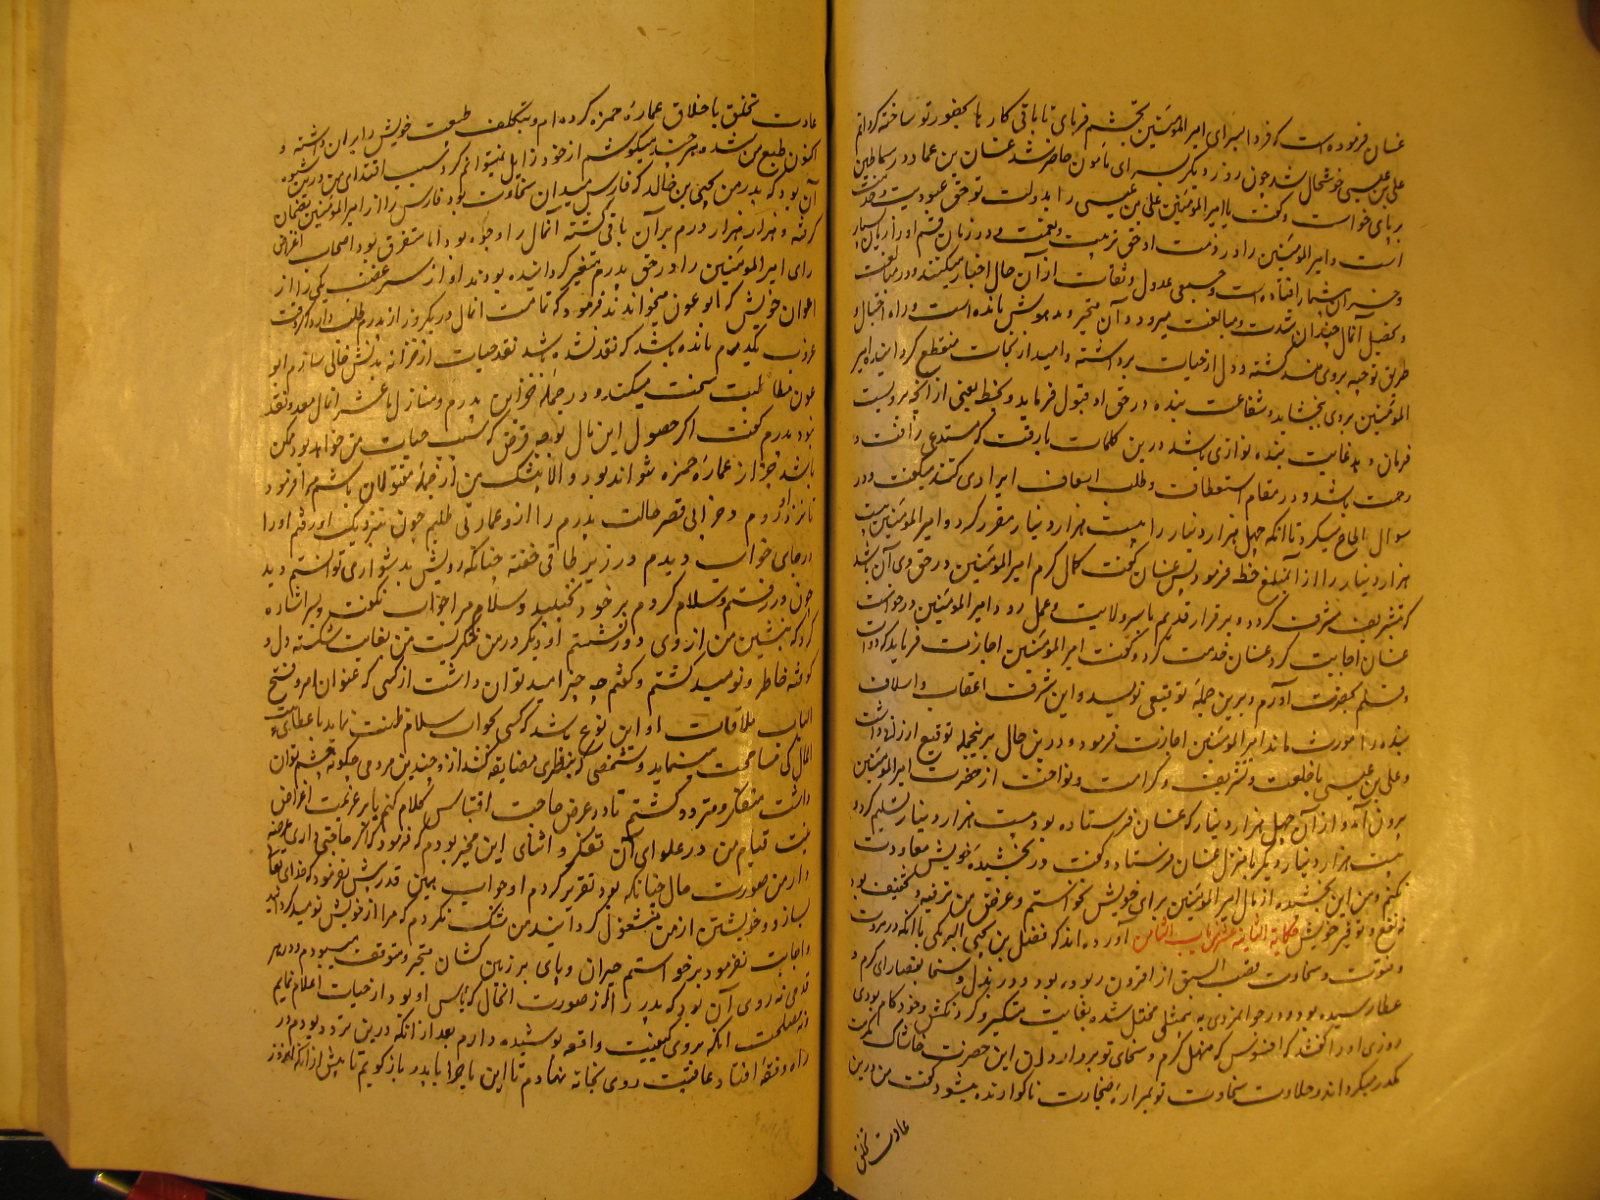 غسان فرموده است که فردا بسرای امیرالمؤمنین تجشم فرمای تا باقی کارها بحضور تو ساخته گردانم
علی بن عیسی خوشحال شد چون روز دیگر بسرای مأمون حاضر شد غسان بن عماد در سماطین
بر پای خواست و گفت یا امیرالمؤمنین علی بن عیسی را بدولت تو حق عبودیت و خدمت
است و امیرالمؤمنین را در ذمت او حق تربیت و نعمت و در زیان قسم او را زیان بسیار
و خسران بیشمار افتاده است و جمعی عدول و ثقات از آن حال اخبار میکنند و در مطالبت
و تحصیل آنمال چندان شدت و مبالغت میرود که در آن متحیر و مدهوش مانده است و راه احتیال و
طریق توجیه بر وی بسته گشته و دل از حیات برداشته و امید از نجات منقطع گردانیده امیر
المؤمنین بر وی ببخشاید و شفاعت بنده در حق او قبول فرماید و بحط بعضی از آنچه بر ویست
فرمان دهد غایت بنده نوازی باشد درین کلمات با رقت که مستدعی رأفت و
رحمت باشد و در مقام استعطاف و طلب اسعاف ایراد می کند میگفت و در
سوال الحاح میکرد تا آنکه چهل هزار دینار را بیست هزار دینار مقرر کرد و امیرالمؤمنین بیست
هزار دینار را از آن مبلغ حط فرمود پس غسان گفت کمال کرم امیرالمؤمنین در حق وی آن باشد
که بتشریف مشرف گردد و بر قرار قدیم با سر ولایت و عمل رود امیرالمؤمنین درخواست
غسان اجابت کرد غسان خدمت کرد و گفت امیرالمؤمنین اجازت فرماید که دوات
و قلم بحضرت آورم و برین جمله توقیعی نویسد و این شرف اعقاب و اسلاف
بنده را موروث ماند امیرالمؤمنین اجازت فرمود و در همین حال برینجمله توقیع ارزانی داشت
و علی بن عیسی با خلعت و تشریف و کرامت و نواخت از حضرت امیرالمؤمنین
برون آمد و از آن چهل هزار دینار که غسان فرستاده بود بیست هزار دینار تسلیم کرد و
بیست هزار دینار دیگر با منزل غسان فرستاد و گفت در بخشیده خویش معاودت
نکنم و من این بخشیده از مال امیرالمؤمنین برای خویش نخواستم و غرض من ترفیه و تخفیف بود
نه نفع و توفیر خویش حکایة الثانیة عشر من باب الثامن آورده اند که فضل بن یحیی البرمکی با آنکه در مروت
و فتوت و سخاوت قصب السبق از اقران ربوده بود و در بذل و سخا بقصارای کرم و
عطا رسیده بود و در جوانمردی به بیمثلی ممثل شده بغایت متکبر و گردنکش و خودکام بودی
روزی او را گفتند که افسوس که منهل کرم و سخای تو بموارد دلق این حضرت خاشاک کدرت
مکدر میگرداند و حلاوت سخاوت تو بمرارة ضجارت ناگوارنده میشود گفت من درین
عادت تخلق
عادت تخلق باخلاق عمارة حمزه کرده ام و بتکلف طبیعت خویش را بر ان داشته و
اکنون طبع من شده هر چند میکوشم از خود زایل نمیتوانم کرد و سبب اقتدای من درین شیوه
آن بود که پدر من یحیی بن خالد که فارس میدان سخاوت بود فارس را از امیرالمؤمنین بضمان
گرفته و هزار هزار درم بر آن باقی گشته آنمال را وجوه بود اما متفرق بود اصحاب اغراض
رای امیرالمؤمنین را در حق پدرم متغیر گردانیده بودند او از سر عنف یکی را از
اعوان خویش که ابو عون میخواندند فرمود که تمامت آنمال در یکروز از پدرم طلب دارد اگر وقت
غروب یکدرم مانده باشد که نقد نشده باشد نقد حیات از خزانه بدنش خالی سازم ابو
عون مطالبت سخت میکند و در جمله خزاین پدرم و منازل ما عشر آنمال معد و نقد
نبود پدرم گفت اگر حصول این مال بوجه قرض که سبب حیات من خواهد بود ممکن
باشد جز از عمارة حمزه نتواند بود و الا بیشک من از جمله مقتولان باشم مرا فرمود
تا نزد او روم و خرابی قصر حالت پدرم را ازو عمارتی طلبم چون بنزدیک او رفتم او را
در جای خواب دیدم در زیر طاقی خفته چنانکه رویش بدشواری توانستم دید
چون در رفتم و سلام کردم بر خود نجنبید و سلام مرا جواب نگفت و بسر اشاره
کرد که بنشین من از وی دور نشستم او دیگر در من ننگریست من بغایت شکسته دل و
کوفته خاطر و نومید گشتم و گفتم چه چیز امید توان داشت از کسی که عنوان امر و فتح
الباب ملاقات او این نوع باشد که کسی بجواب سلام ظنت نماید با عطای بیت
المال کی مسامحت مینماید و شخصی که بنظری مضایقه کند از و چندین مردمی چگونه چشم توان
داشت متفکر و متردد گشتم تا در عرض حاجت افتتاح کلام کنم یا بر عزیمت اعراض
نیت قیام من در غلوای آن تفکر و اثنای این تحیر بودم که فرمود که اگر حاجتی داری عرضه
دار من صورت حال چنانکه بود تقریر کردم او جواب بهمین قدر بیش نفرمود که خدای تعالی
بسازد و خویشتن را از من مشغول گردانید من شک نکردم که مرا از خویش نومید گردانید
و اجابت نفرمود برخواستم حیران و پای بر زمین کشان متحیر و متوقف میبودم و در هر
قدمی نه روی آن بود که پدر را اگر از صورت انحال که یاس او بود از حیات اعلام نمایم
و نه مصلحت آنکه بر وی کیفیت واقعه پوشیده دارم بعد از آنکه درین تردد بودم در
راه وقفه افتاد عاقبت روی بخانه نهادم تا این ماجرا با پدر باز گویم تا پیش از آنکه امروز